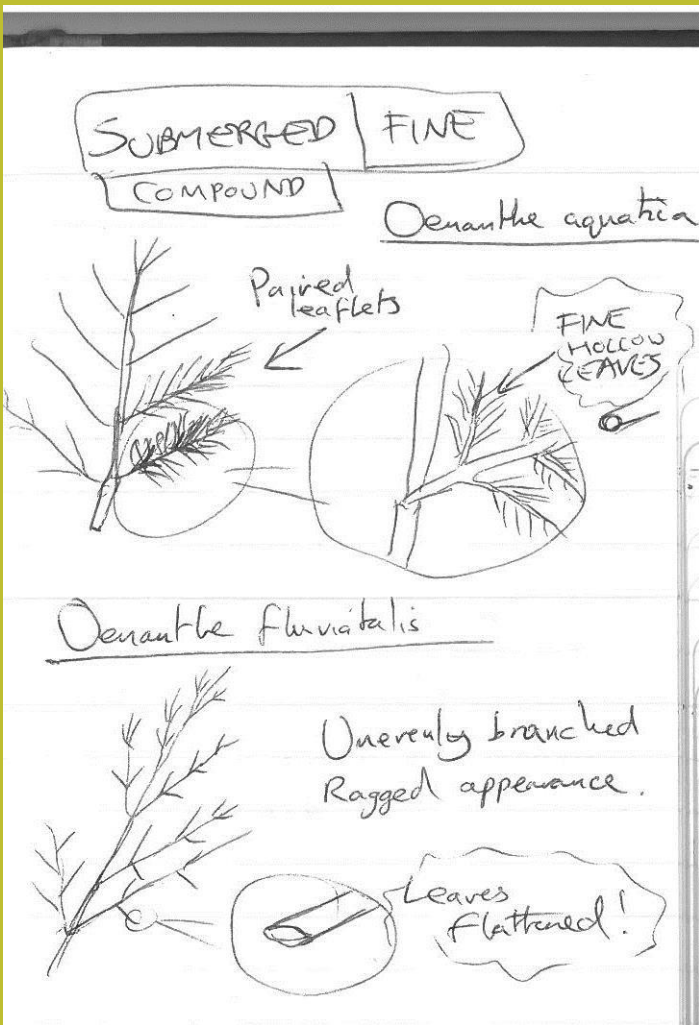 SUBMERGED FINE
COMPOUND
Oenanthe aquatica
Paired
leaflets
FINE
HOLLOW
LEAVES
Oenanthe fluviatalis
Unevenly branched
Ragged appearance.
Leaves
flattened!